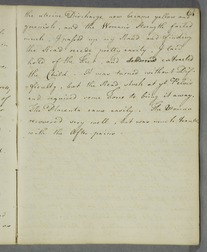 the uterine Discharge now became yellow and
greenish, and the Woman's Strength failed
much, I passed up my Hand and finding
the Head recede pretty easily, I laid
hold of the Feet, and delivered extracted
the Child. It was turned without Dif-
ficulty, but the Head stuck at ye Pelvis
and required some Force to bring it away.
The Placenta came easily. The Woman
recovered very well, but was much troubled
with the After pains.